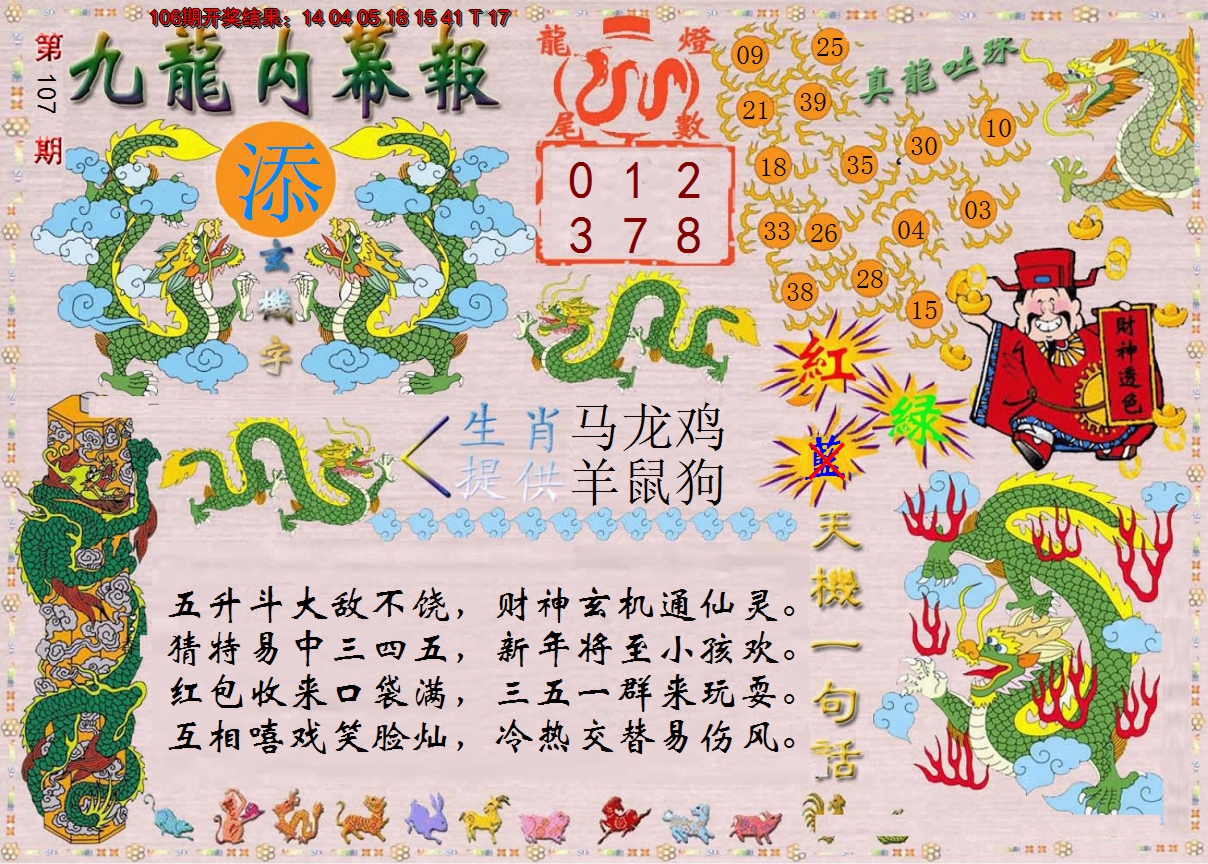 106期开奖结果：14 04 05 18 15 41 T 17
第107期
九龍内幕報
添
玄機字
龍燈
尾數
0 1 2
3 7 8
真龍吐珠
09 25
21 39
18 35 30 10
33 26 04 03
38 28 15
財神透色
紅
綠
藍
生肖 马龙鸡
提供 羊鼠狗
五升斗大敌不饶，财神玄机通仙灵。
猜特易中三四五，新年将至小孩欢。
红包收来口袋满，三五一群来玩耍。
互相嘻戏笑脸灿，冷热交替易伤风。
天機一句話